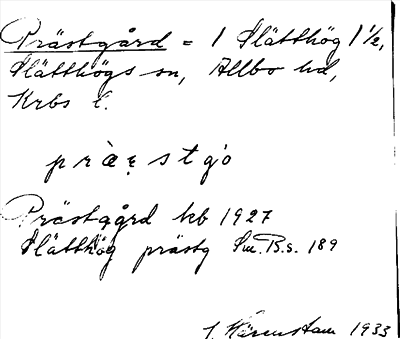 Prästgård = 1 Slätthög 1 1/2,
Slätthögs sn, Allbo hd,
Krbs l.
præ̀stgo
Prästgård kb 1927
Slätthög prästg Sm. B.s. 189
J. Härenstam 1933